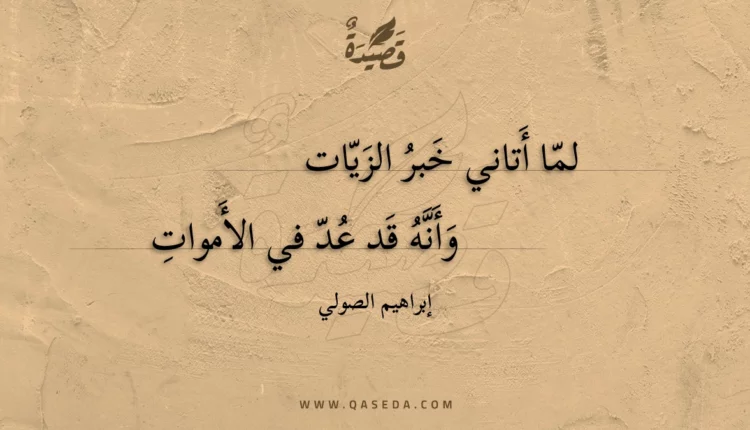 قَصِيْدَةٌ
لمّا أَتاني خَبرُ الزَيّات
وَأَنَّهُ قَد عُدّ في الأَمواتِ
إبراهيم الصولي
WWW.QASEDA.COM